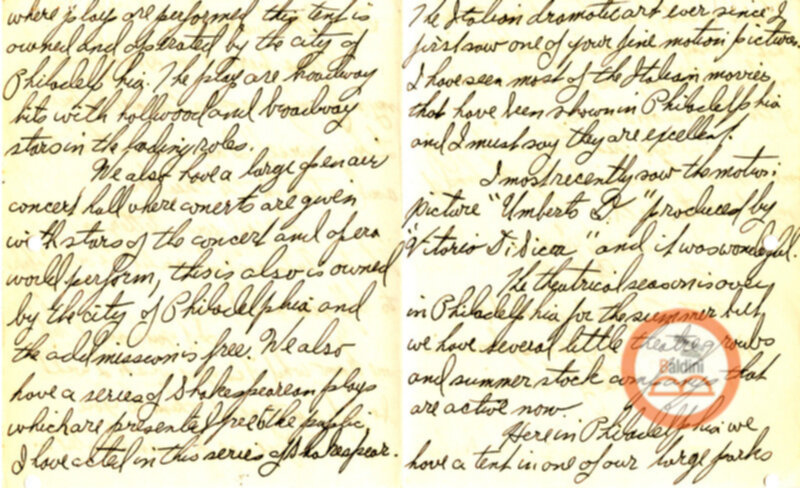 where plays are performed this tent is
owned and operated by the city of
Philadelphia. The play are broadway
hits with hollwood and broadway
stars in the leading roles.
We also have a large open air
concert hall where conerts are given
with stars of the concert and opera
world perform, this is also is owned
by the city of Philadelphia and
the addmission is free. We also
have a series of Shakespearean plays
which are presented free to the public,
I have acted in this series of Shakespear.
The Italian dramatic art ever since I
first saw one of your fine motion pictures.
I have seen most of the Italian movies
that have been shown in Philadelphia
and I must say they are excellent.
I most recently saw the motion
picture "Umberto D" produced by
"Vitorio Di Sica" and it was wonderful.
The theatrical season is over
in Philadelphia for the summer but
we have several little theatre groups
and summer stock companies that
are active now.
Baldini
Here in Philadelphia we
have a tent in one of our large parks